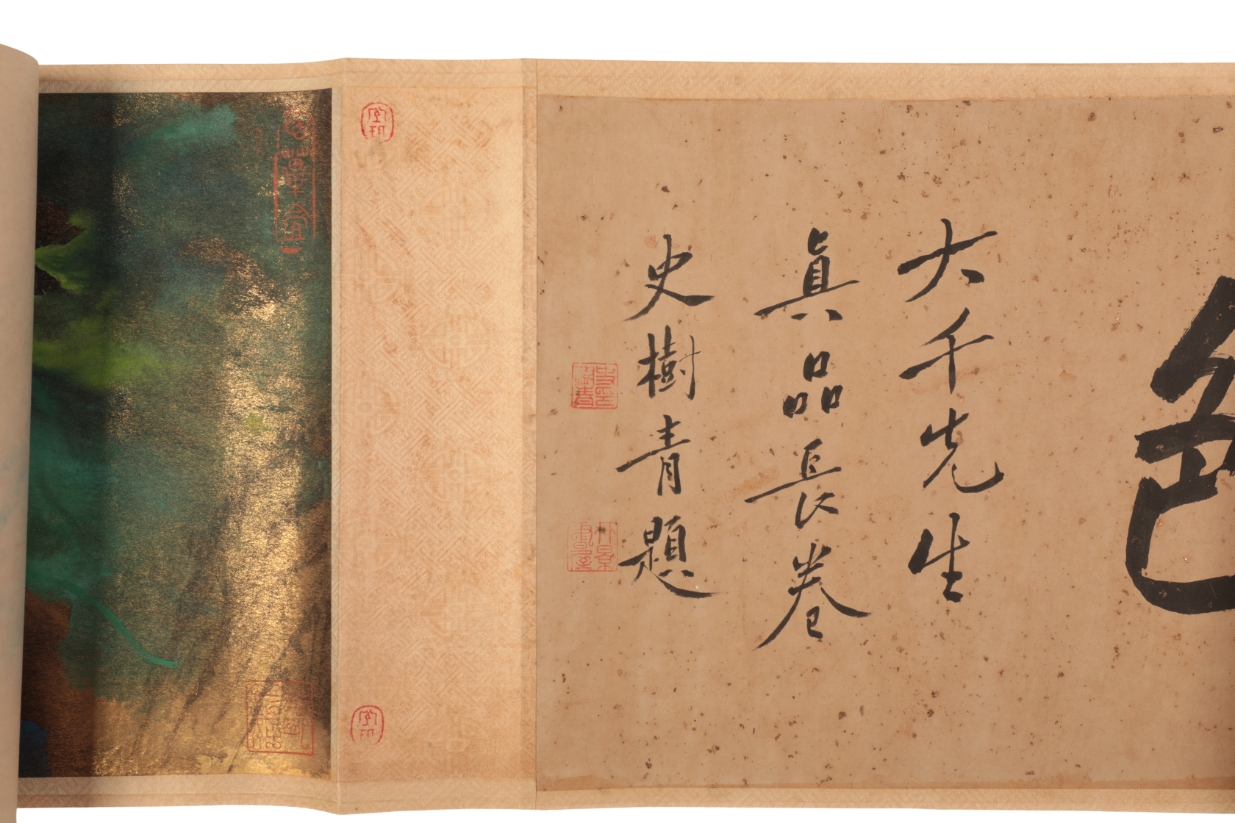 色
大千先生
真品長卷
史樹青題